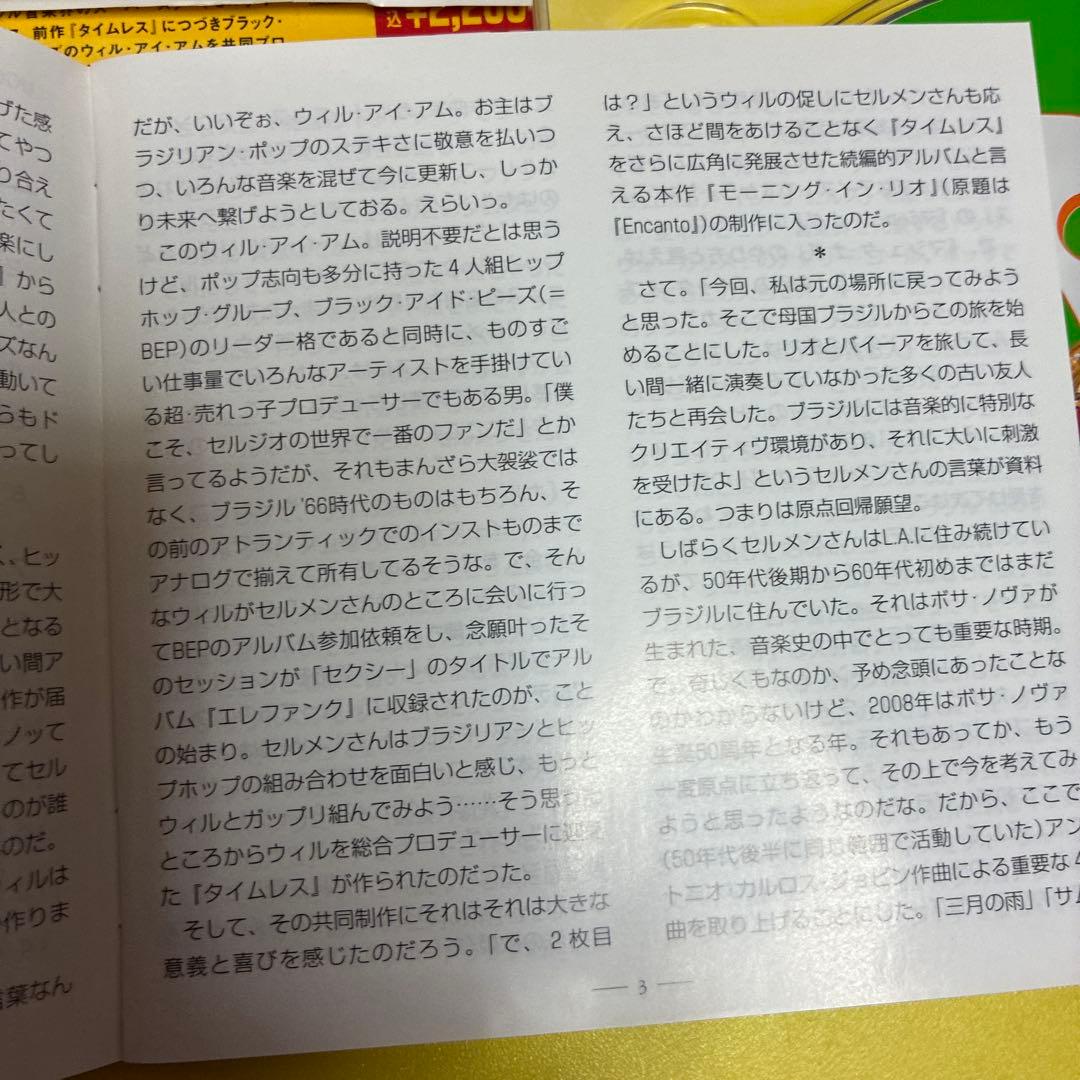 前作『タイムレス』につづきブラック・
のウィル・アイ・アムを共同プロ
込¥2,200
げた感
てやつ
り合え
たくて
楽にし
』から
人との
ズなん
動いて
らもド
ってし
、ヒッ
形で大
となる
い間ア
作が届
ノッて
てセル
のが誰
のだ。
ィルは
作りま
言葉なん
だが、いいぞぉ、ウィル・アイ・アム。お主はブ
ラジリアン・ポップのステキさに敬意を払いつ
つ、いろんな音楽を混ぜて今に更新し、しっか
り未来へ繋げようとしておる。えらいっ。
このウィル・アイ・アム。説明不要だとは思う
けど、ポップ志向も多分に持った4人組ヒップ
ホップ・グループ、ブラック・アイド・ピーズ(=
BEP)のリーダー格であると同時に、ものすご
い仕事量でいろんなアーティストを手掛けてい
る超・売れっ子プロデューサーでもある男。「僕
こそ、セルジオの世界で一番のファンだ」とか
言ってるようだが、それもまんざら大袈裟では
なく、ブラジル '66時代のものはもちろん、そ
の前のアトランティックでのインストものまで
アナログで揃えて所有してるそうな。で、そん
なウィルがセルメンさんのところに会いに行っ
てBEPのアルバム参加依頼をし、念願叶ったそ
のセッションが「セクシー」のタイトルでアル
バム『エレファンク』に収録されたのが、こと
の始まり。セルメンさんはブラジリアンとヒッ
プホップの組み合わせを面白いと感じ、もっと
ウィルとガップリ組んでみよう……そう思った
ところからウィルを総合プロデューサーに迎え
た『タイムレス』が作られたのだった。
そして、その共同制作にそれはそれは大きな
意義と喜びを感じたのだろう。「で、2枚目
は?」というウィルの促しにセルメンさんも応
え、さほど間をあけることなく『タイムレス』
をさらに広角に発展させた続編的アルバムと言
える本作『モーニング・イン・リオ』(原題は
『Encanto』)の制作に入ったのだ。
*
さて。「今回、私は元の場所に戻ってみよう
と思った。そこで母国ブラジルからこの旅を始
めることにした。リオとバイーアを旅して、長
い間一緒に演奏していなかった多くの古い友人
たちと再会した。ブラジルには音楽的に特別な
クリエイティヴ環境があり、それに大いに刺激
を受けたよ」というセルメンさんの言葉が資料
にある。つまりは原点回帰願望。
しばらくセルメンさんはL.A.に住み続けてい
るが、50年代後期から60年代初めまではまだ
ブラジルに住んでいた。それはボサ・ノヴァが
生まれた、音楽史の中でとっても重要な時期。
で、奇しくもなのか、予め念頭にあったことな
のかわからないけど、2008年はボサ・ノヴァ
生誕50周年となる年。それもあってか、もう
一度原点に立ち返って、その上で今を考えてみ
ようと思ったようなのだな。だから、ここで
(50年代後半に同じ範囲で活動していた)アン
トニオ・カルロス・ジョビン作曲による重要な4
曲を取り上げることにした。「三月の雨」「サム
3